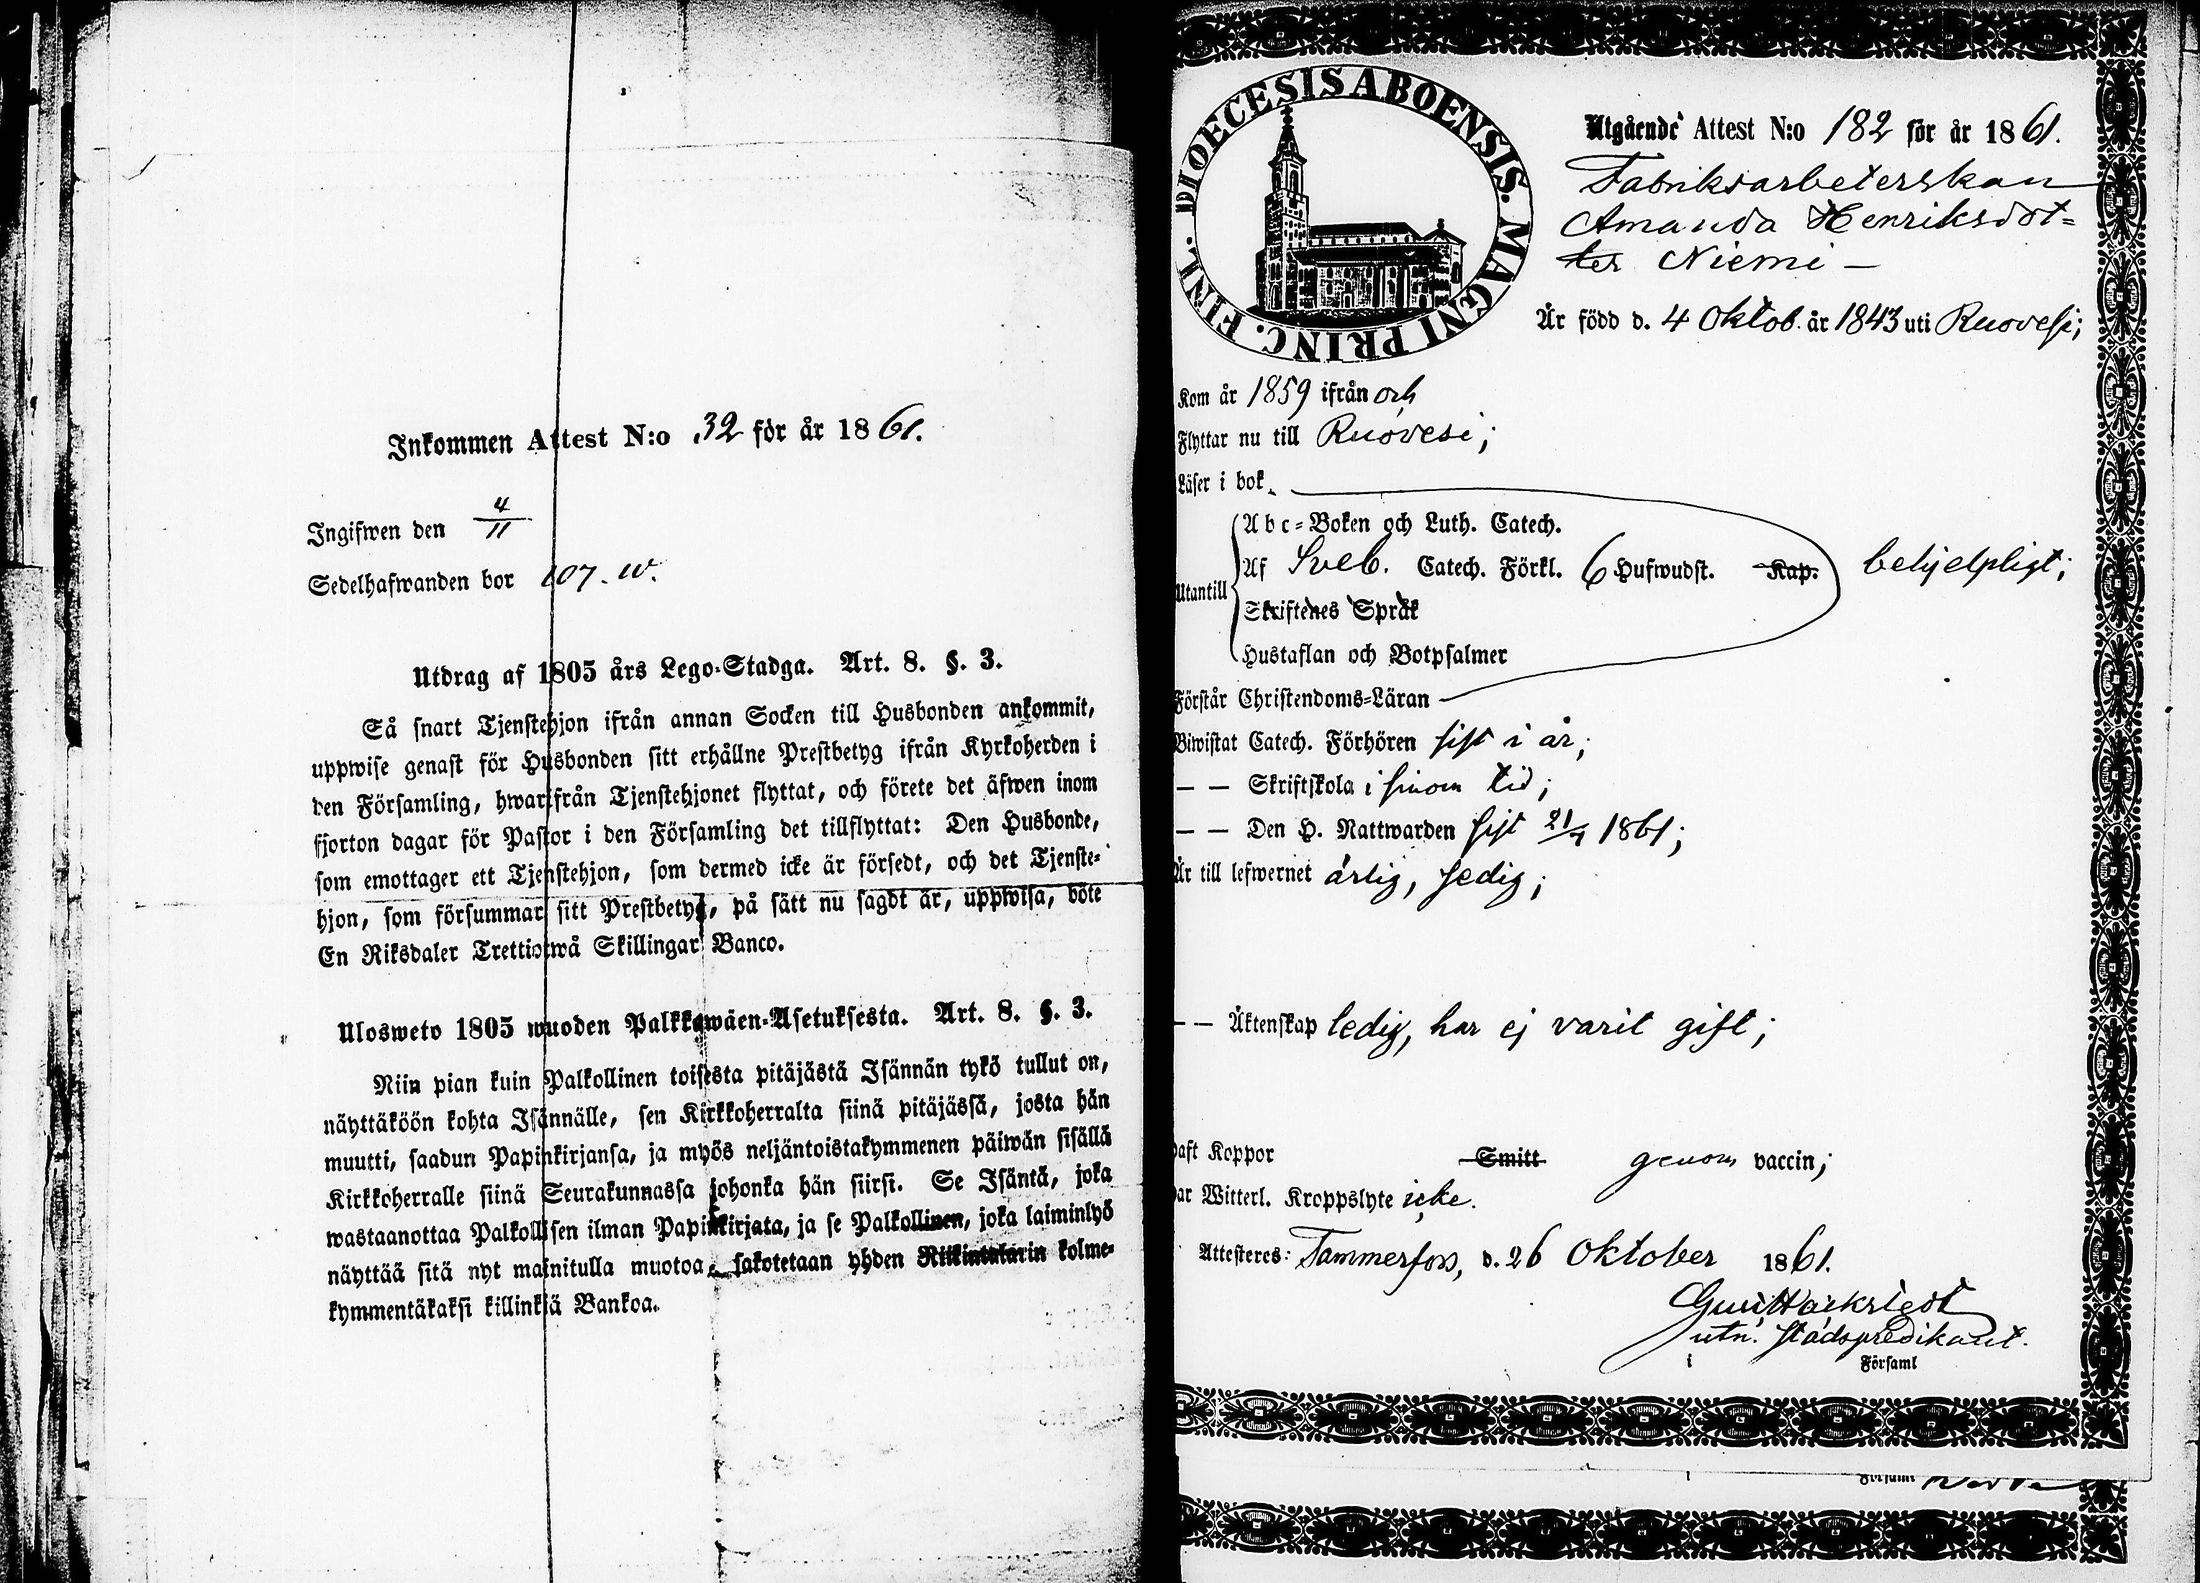 Inkommen Attest N:o 32 för år 1861.
Ingifwen den 4/11
Sedelhafwanden bor 107. w.
Utdrag af 1805 års Lego-Stadga. Art. 8. §. 3.
Så snart Tjenstehjon ifrån annan Socken till Husbonden ankommit,
uppwise genast för Husbonden sitt erhållne Prestbetyg ifrån Kyrkoherden i
den Församling, hwarifrån Tjenstehjonet flyttat, och förete det äfwen inom
fjorton dagar för Pastor i den Församling det tillflyttat: Den Husbonde,
som emottager ett Tjenstehjon, som dermed icke är försedt, och det Tjenste-
hjon, som försummar sitt Prestbetyg, på sätt nu sagdt är, uppwisa, böte
En Riksdaler Trettiotwå Skillingar Banco.
Ulosweto 1805 wuoden Palkkawäen-Asetuksesta. Art. 8. §. 3.
Niin pian kuin Palkollinen toisesta pitäjästä Isännän tykö tullut on,
näyttäköön kohta Isännälle, sen Kirkkoherralta siinä pitäjässä, josta hän
muutti, saadun Papinkirjansa, ja myös neljäntoistakymmenen päiwän sisällä
Kirkkoherralle siinä Seurakunnassa johonka hän siirsi. Se Isäntä, joka
wastaanottaa Palkollisen ilman Papinkirjata, ja se Palkollinen, joka laiminlyö
näyttää sitä nyt mainitulla muotoa, sakotetaan yhden Riikintalarin kolme-
kymmentäkaksi killinkiä Bankoa.
DIOECESIS ABOENSIS. MAGNI PRINC. FINL.
Utgående Attest N:o 182 för år 1861.
Fabriksarbeterskan
Amanda Henriksdot=
ter Niemi —
Är född d. 4 Oktob. år 1843 uti Ruovesi;
Kom år 1859 ifrån och
Flyttar nu till Ruovesi;
Läser i bok
Abc-Boken och Luth. Catech.
Utantill Af Sveb. Catech. Förkl. 6 Hufwudst. Kap. behjelpligt;
Skriftenes Språk
Hustaflan och Botpsalmer
Förstår Christendoms-Läran
Biwistat Catech. Förhören sist i år;
— — Skriftskola i sinom tid;
— — Den H. Nattwarden sist 21/7 1861;
Är till lefwernet ärlig, sedig;
— — Äktenskap ledig, har ej varit gift;
haft Koppor Smitt genom vaccin;
har Witterl. Kroppslyte icke.
Attesteres: Tammerfors, d. 26 Oktober 1861.
utn. stadspredikant.
i Församl
Församl